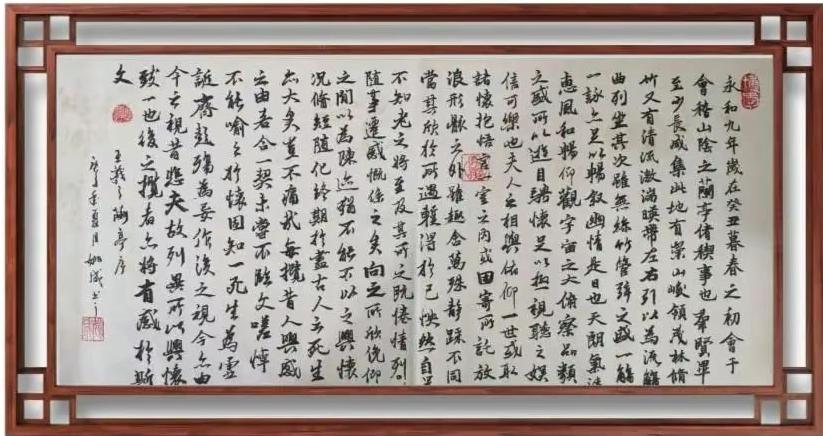 永和九年歲在癸丑暮春之初會于
會稽山陰之蘭亭脩稧事也羣賢畢
至少長咸集此地有崇山峻領茂林脩
竹又有清流激湍暎帶左右引以為流觴
曲列坐其次雖無絲竹管弦之盛一觴
一詠亦足以暢敘幽情是日也天朗氣清
惠風和暢仰觀宇宙之大俯察品類
之盛所以遊目騁懷足以極視聽之娛
信可樂也夫人之相與俯仰一世或取
諸懷抱悟言一室之內或因寄所託放
浪形骸之外雖趣舍萬殊靜躁不同
當其欣於所遇輙得於己怏然自足
不知老之將至及其所之既惓情
隨事遷感慨係之矣向之所欣俛仰
之閒以為陳迹猶不能不以之興懷
況脩短隨化終期於盡古人云死生
亦大矣豈不痛哉每攬昔人興感
之由若合一契未嘗不臨文嗟悼
不能喻之於懷固知一死生為虛
誕齊彭殤為妄作後之視今亦由
今之視昔悲夫故列異所以興懷
致一也後之攬者亦將有感於斯
文
王羲之蘭亭序
夏月